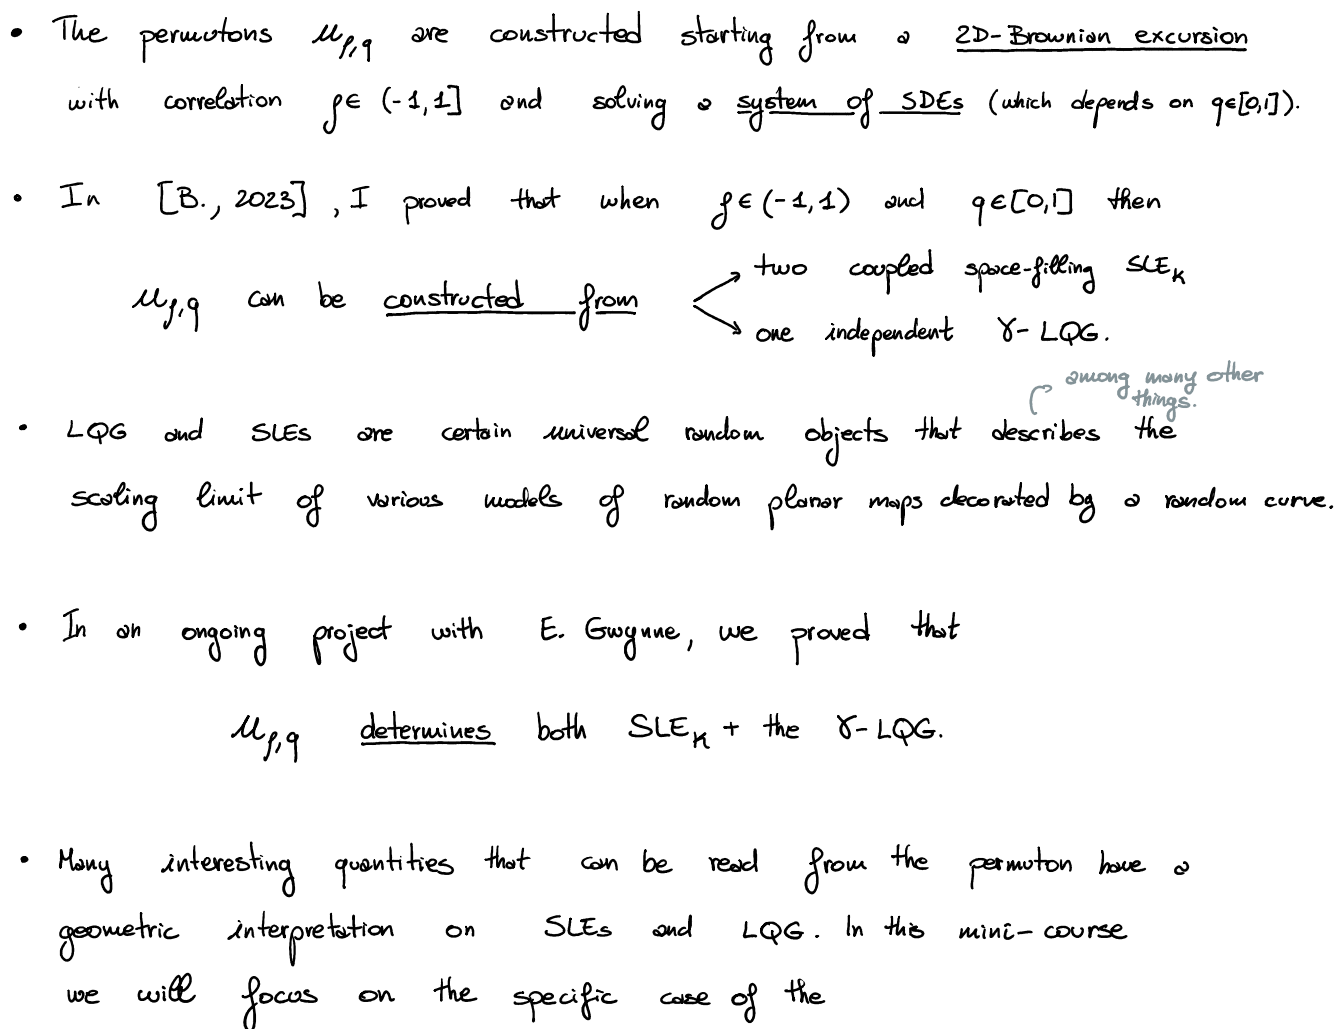 • The permutons μ_{ρ,q} are constructed starting from a 2D-Brownian excursion
with correlation ρ∈ (-1,1] and solving a system of SDEs (which depends on q∈[0,1]).
• In [B., 2023], I proved that when ρ∈(-1,1) and q∈[0,1] then
two coupled space-filling SLE_κ
μ_{ρ,q} can be constructed from
one independent γ-LQG.
among many other
things.
• LQG and SLEs are certain universal random objects that describes the
scaling limit of various models of random planar maps decorated by a random curve.
• In an ongoing project with E. Gwynne, we proved that
μ_{ρ,q} determines both SLE_κ + the γ-LQG.
• Many interesting quantities that can be read from the permuton have a
geometric interpretation on SLEs and LQG. In this mini-course
we will focus on the specific case of the